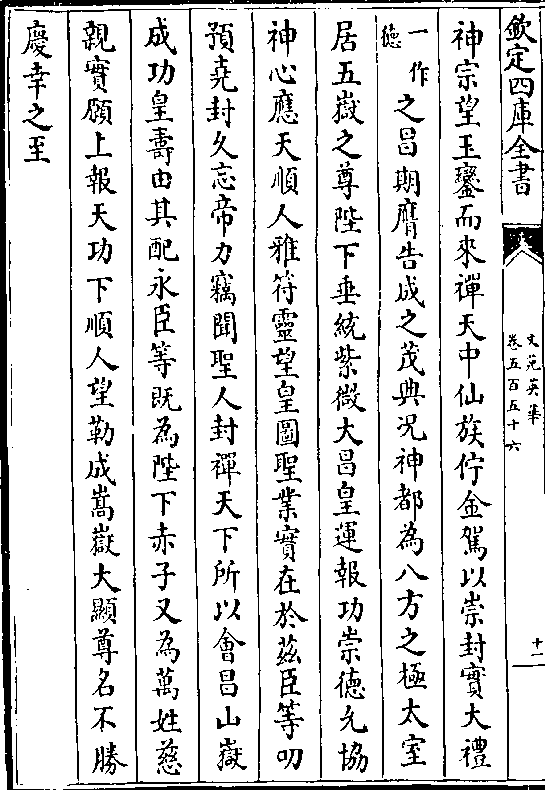 欽定四庫全書
文苑英華
卷五百五十六
十一
神宗望玉鑾而來禪天中仙族佇金駕以崇封實大禮
一作德
之昌期膺告成之茂典况神都為八方之極太室
居五嶽之尊陛下垂統紫微大昌皇運報功崇德允協
神心應天順人雅符靈望皇圖聖業實在於兹臣等叨
預堯封久忘帝力竊聞聖人封禪天下所以會昌山嶽
成功皇壽由其配永臣等既為陛下赤子又為萬姓慈
親實願上報天功下順人望勒成嵩嶽大顯尊名不勝
慶幸之至